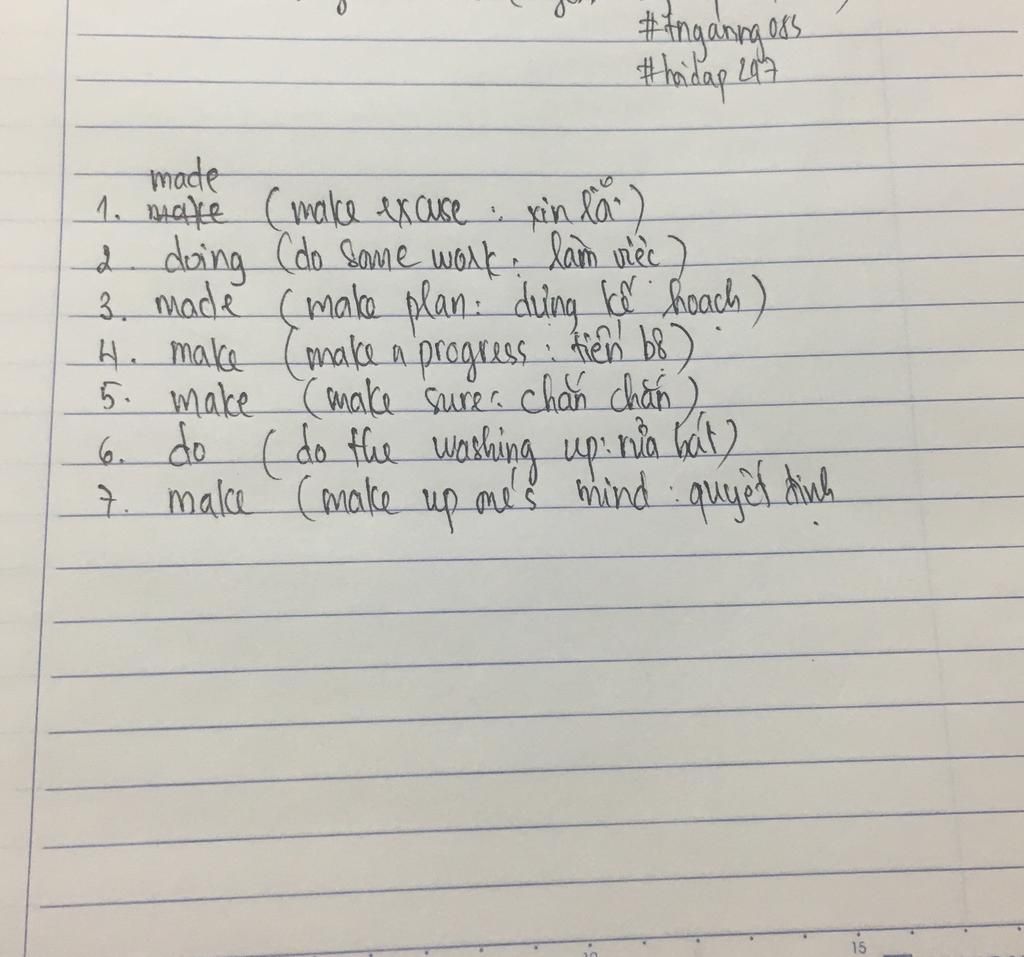 #tnganng085
#hoidap247
made
1. make (make excuse : xin lỗi)
2. doing (do some work : làm việc)
3. made (make plan : dựng kế hoạch)
4. make (make a progress : tiến bộ)
5. make (make sure : chắc chắn)
6. do (do the washing up : rửa bát)
7. make (make up one's mind : quyết định